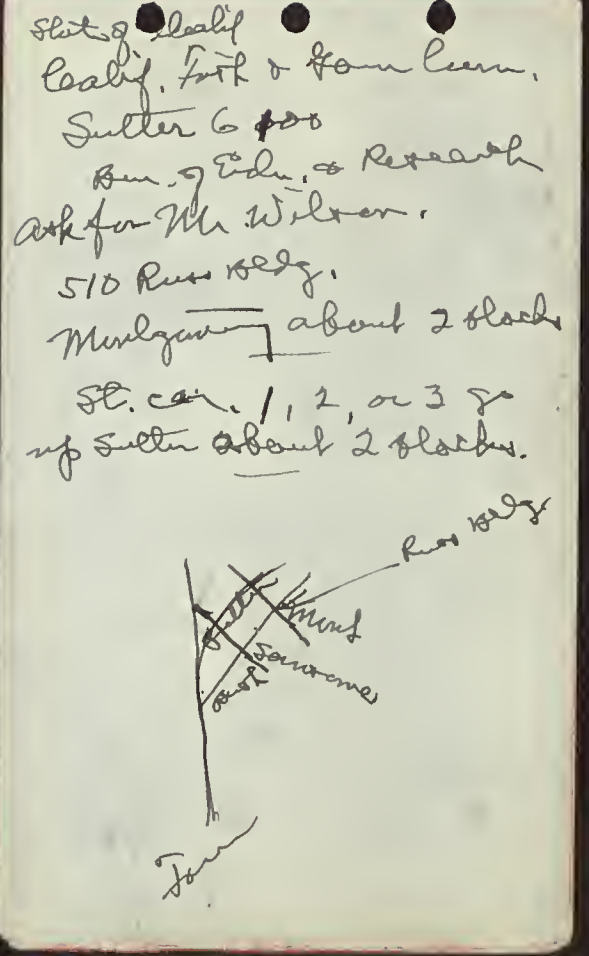 State of Calif
Calif. Fish & Game Com.
Sutter 6100
Bur. of Edu. & Research
ask for Mr. Wilson.
510 Russ Bldg.
Montgomery about 2 blocks
St. car. 1, 2, or 3 go
up Sutter about 2 blocks.
Russ Bldg
Sutter
Mont
Sansome